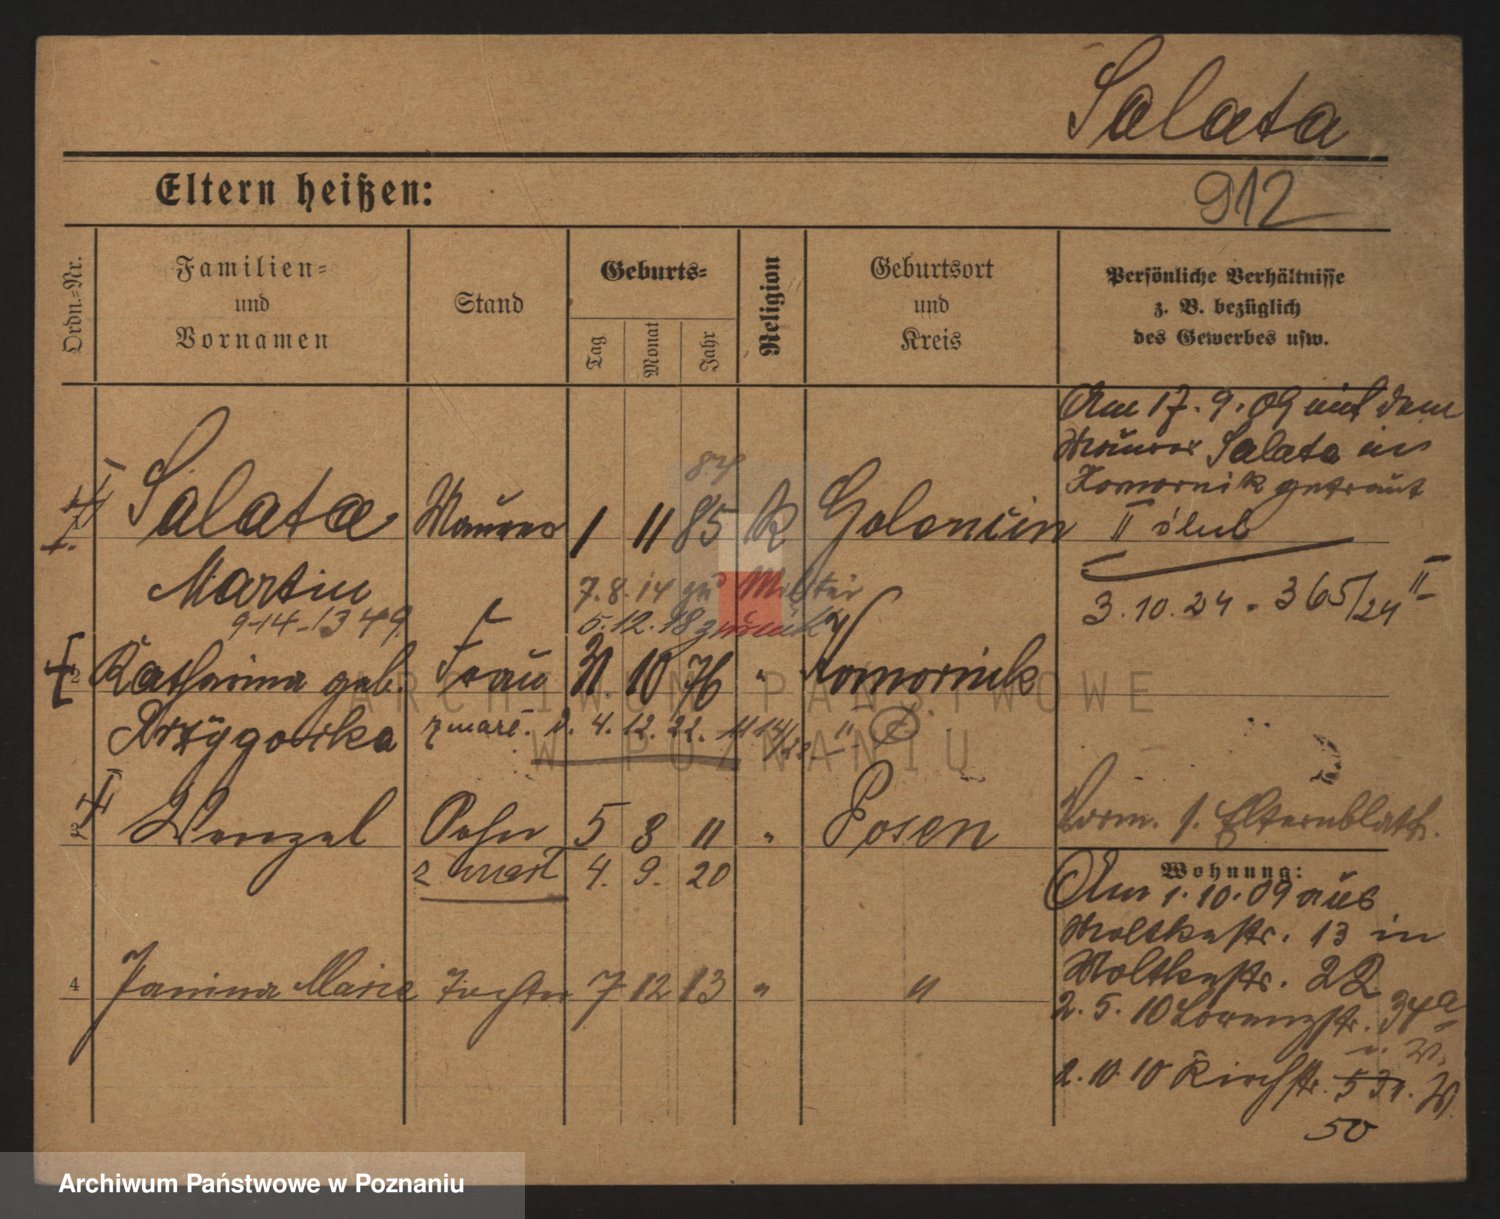 Salata
Eltern heißen:
912
Ordn.-Nr.
Familien-
und
Vornamen
Stand
Geburts-
Tag
Monat
Jahr
Religion
Geburtsort
und
Kreis
Persönliche Verhältnisse
z. B. bezüglich
des Gewerbes usw.
Am 17. 9. 09 mit dem
Maurer Salata in
Komornik getraut
II ślub
3. 10. 24 - 365/24 II
84
Salata Maurer 1 11 85 K Golencin
Martin
7. 8. 14 zu Militär
9-14-1349
5. 12. 18 zurück
2 Katharina geb. Frau 31 10 76 " Komornik
zmarł. d. 4. 12. 22.
3 Wenzel Sohn 5 8 11 " Posen
z marł 4. 9. 20
Vorm. s. Elternblatt.
Wohnung:
Am 1. 10. 09 aus
Moltkestr. 13 in
Moltkestr. 22
4 Janina Marie Tochter 7 12 13 " "
2. 5. 10 Lorenzstr. 34a
2. 10. 10 Kirchstr.
50
ARCHIWUM PAŃSTWOWE
W POZNANIU
Archiwum Państwowe w Poznaniu